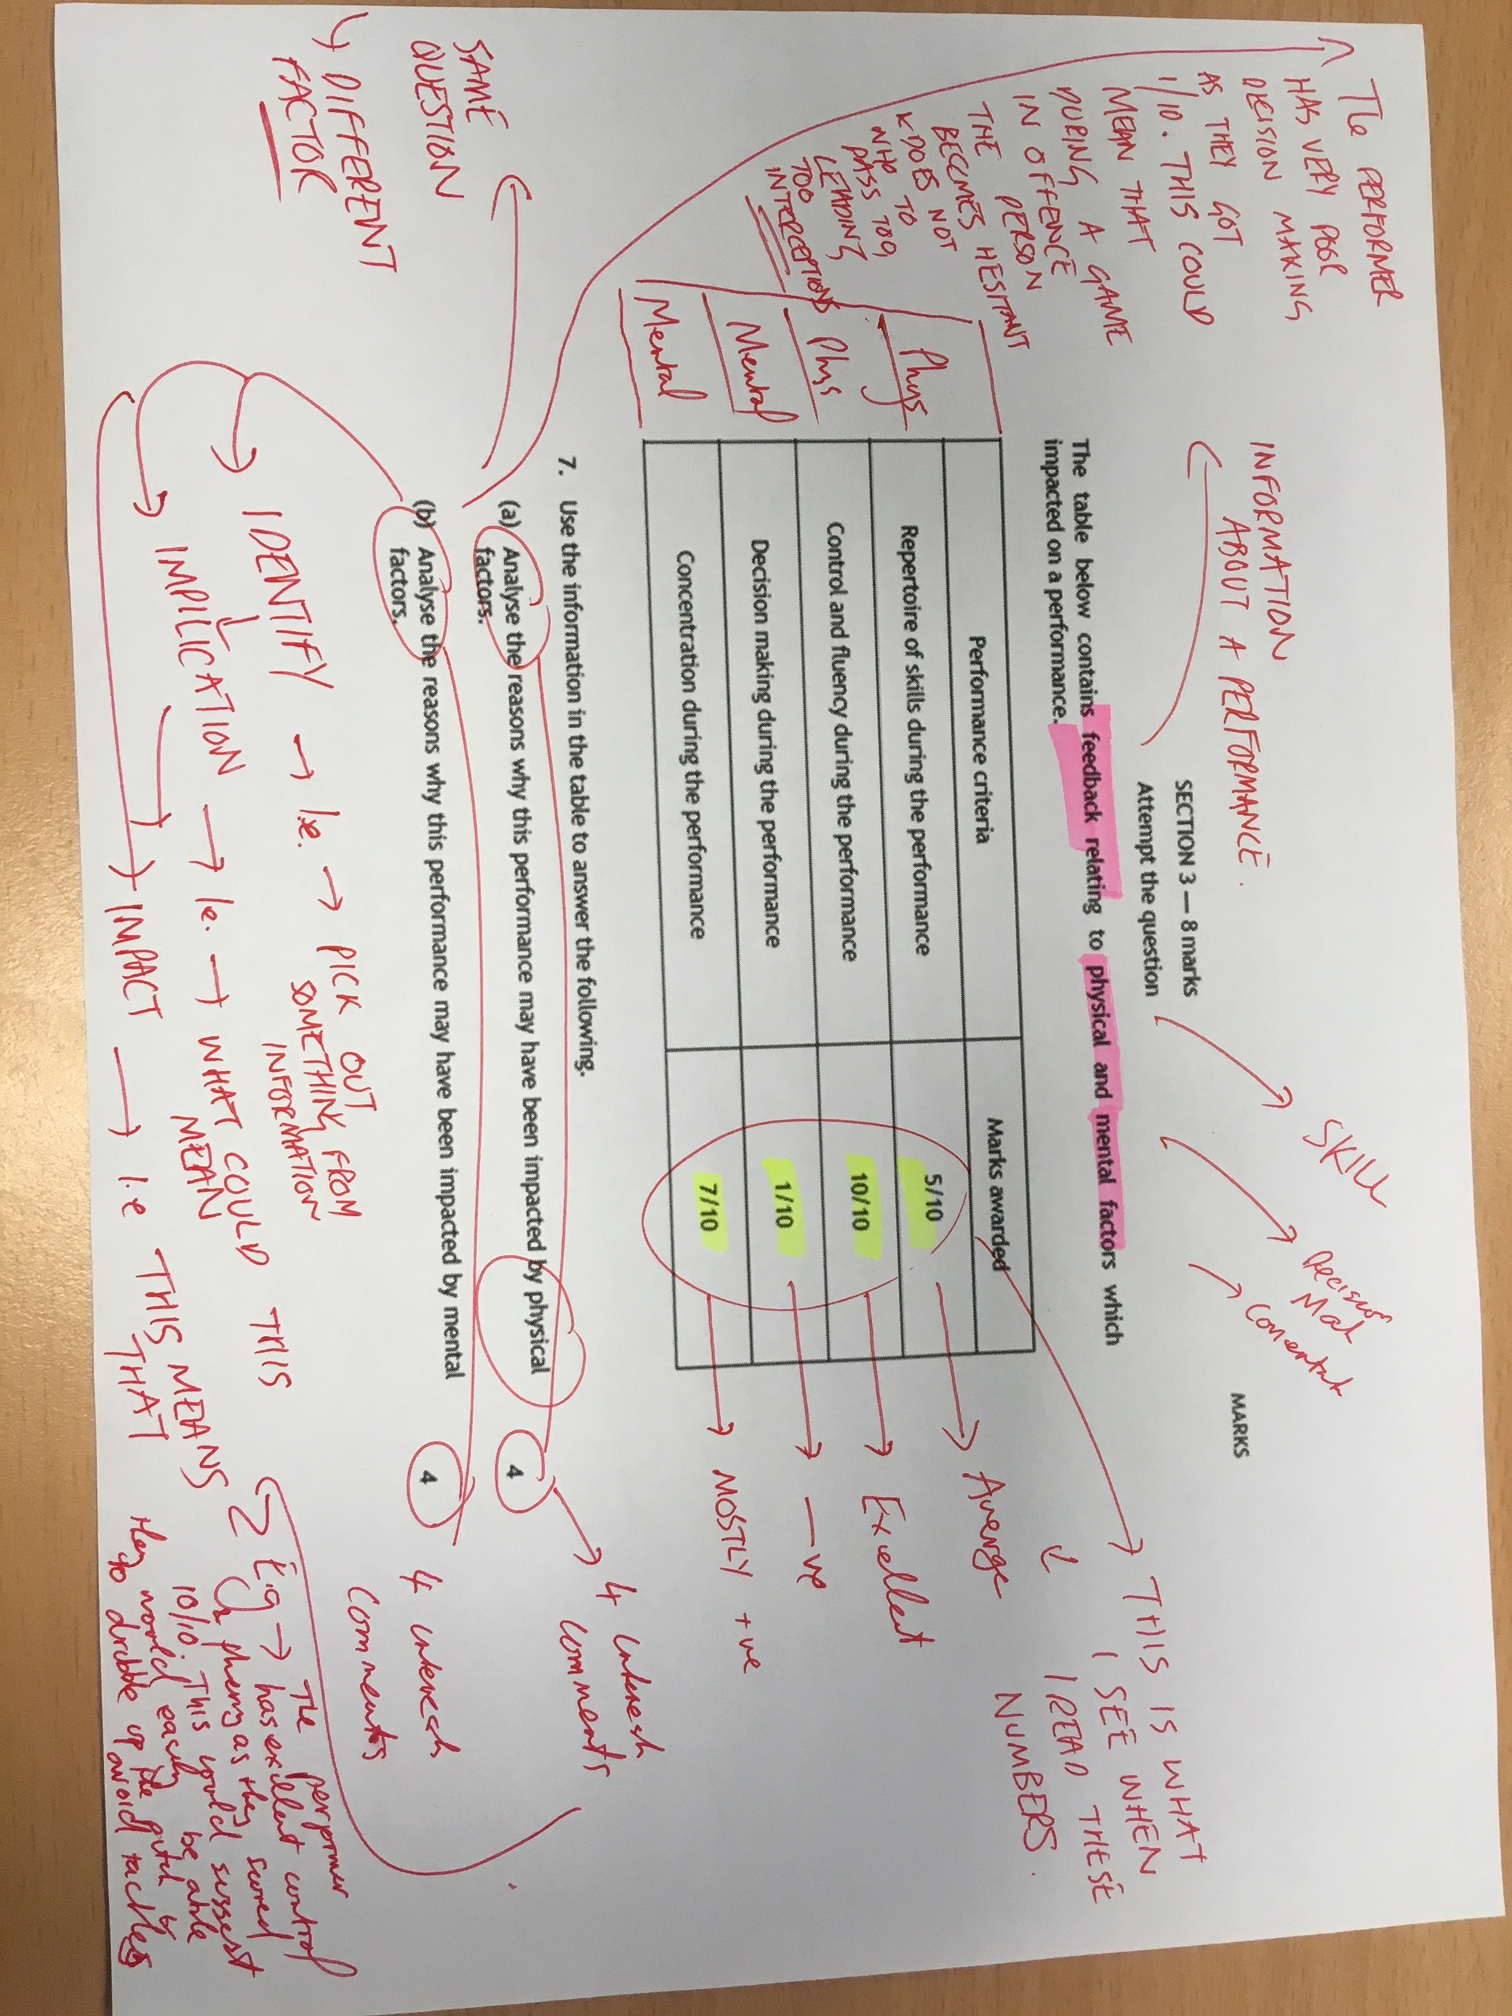 INFORMATION
ABOUT A PERFORMANCE.
SECTION 3 — 8 marks
Attempt the question
MARKS
SKILL
Decision
Concentrat
The table below contains feedback relating to physical and mental factors which
impacted on a performance.
Performance criteria Marks awarded
Phys Repertoire of skills during the performance 5/10 Average
Phys Control and fluency during the performance 10/10 Excellent
Mental Decision making during the performance 1/10 -ve
Mental Concentration during the performance 7/10 MOSTLY +ve
THIS IS WHAT
I SEE WHEN
I READ THESE
NUMBERS.
7. Use the information in the table to answer the following.
(a) Analyse the reasons why this performance may have been impacted by physical
factors. 4
(b) Analyse the reasons why this performance may have been impacted by mental
factors. 4
4
comments
4
comments
The PERFORMER
HAS VERY POOR
DECISION MAKING
AS THEY GOT
1/10. THIS COULD
MEAN THAT
DURING A GAME
IN OFFENCE
THE PERSON
BECOMES HESITANT
& DOES NOT
WHO TO
PASS TOO,
LEADING
TOO
INTERCEPTIONS
SAME
QUESTION
↳ DIFFERENT
FACTOR
IDENTIFY → i.e. → PICK OUT
SOMETHING FROM
INFORMATION
IMPLICATION → ie. → WHAT COULD THIS
MEAN
IMPACT → i.e THIS MEANS
THAT
E.g → The performer
has excellent control
as they scored
10/10. This would suggest
they would easily be able
to dribble up the pitch &
avoid tackles